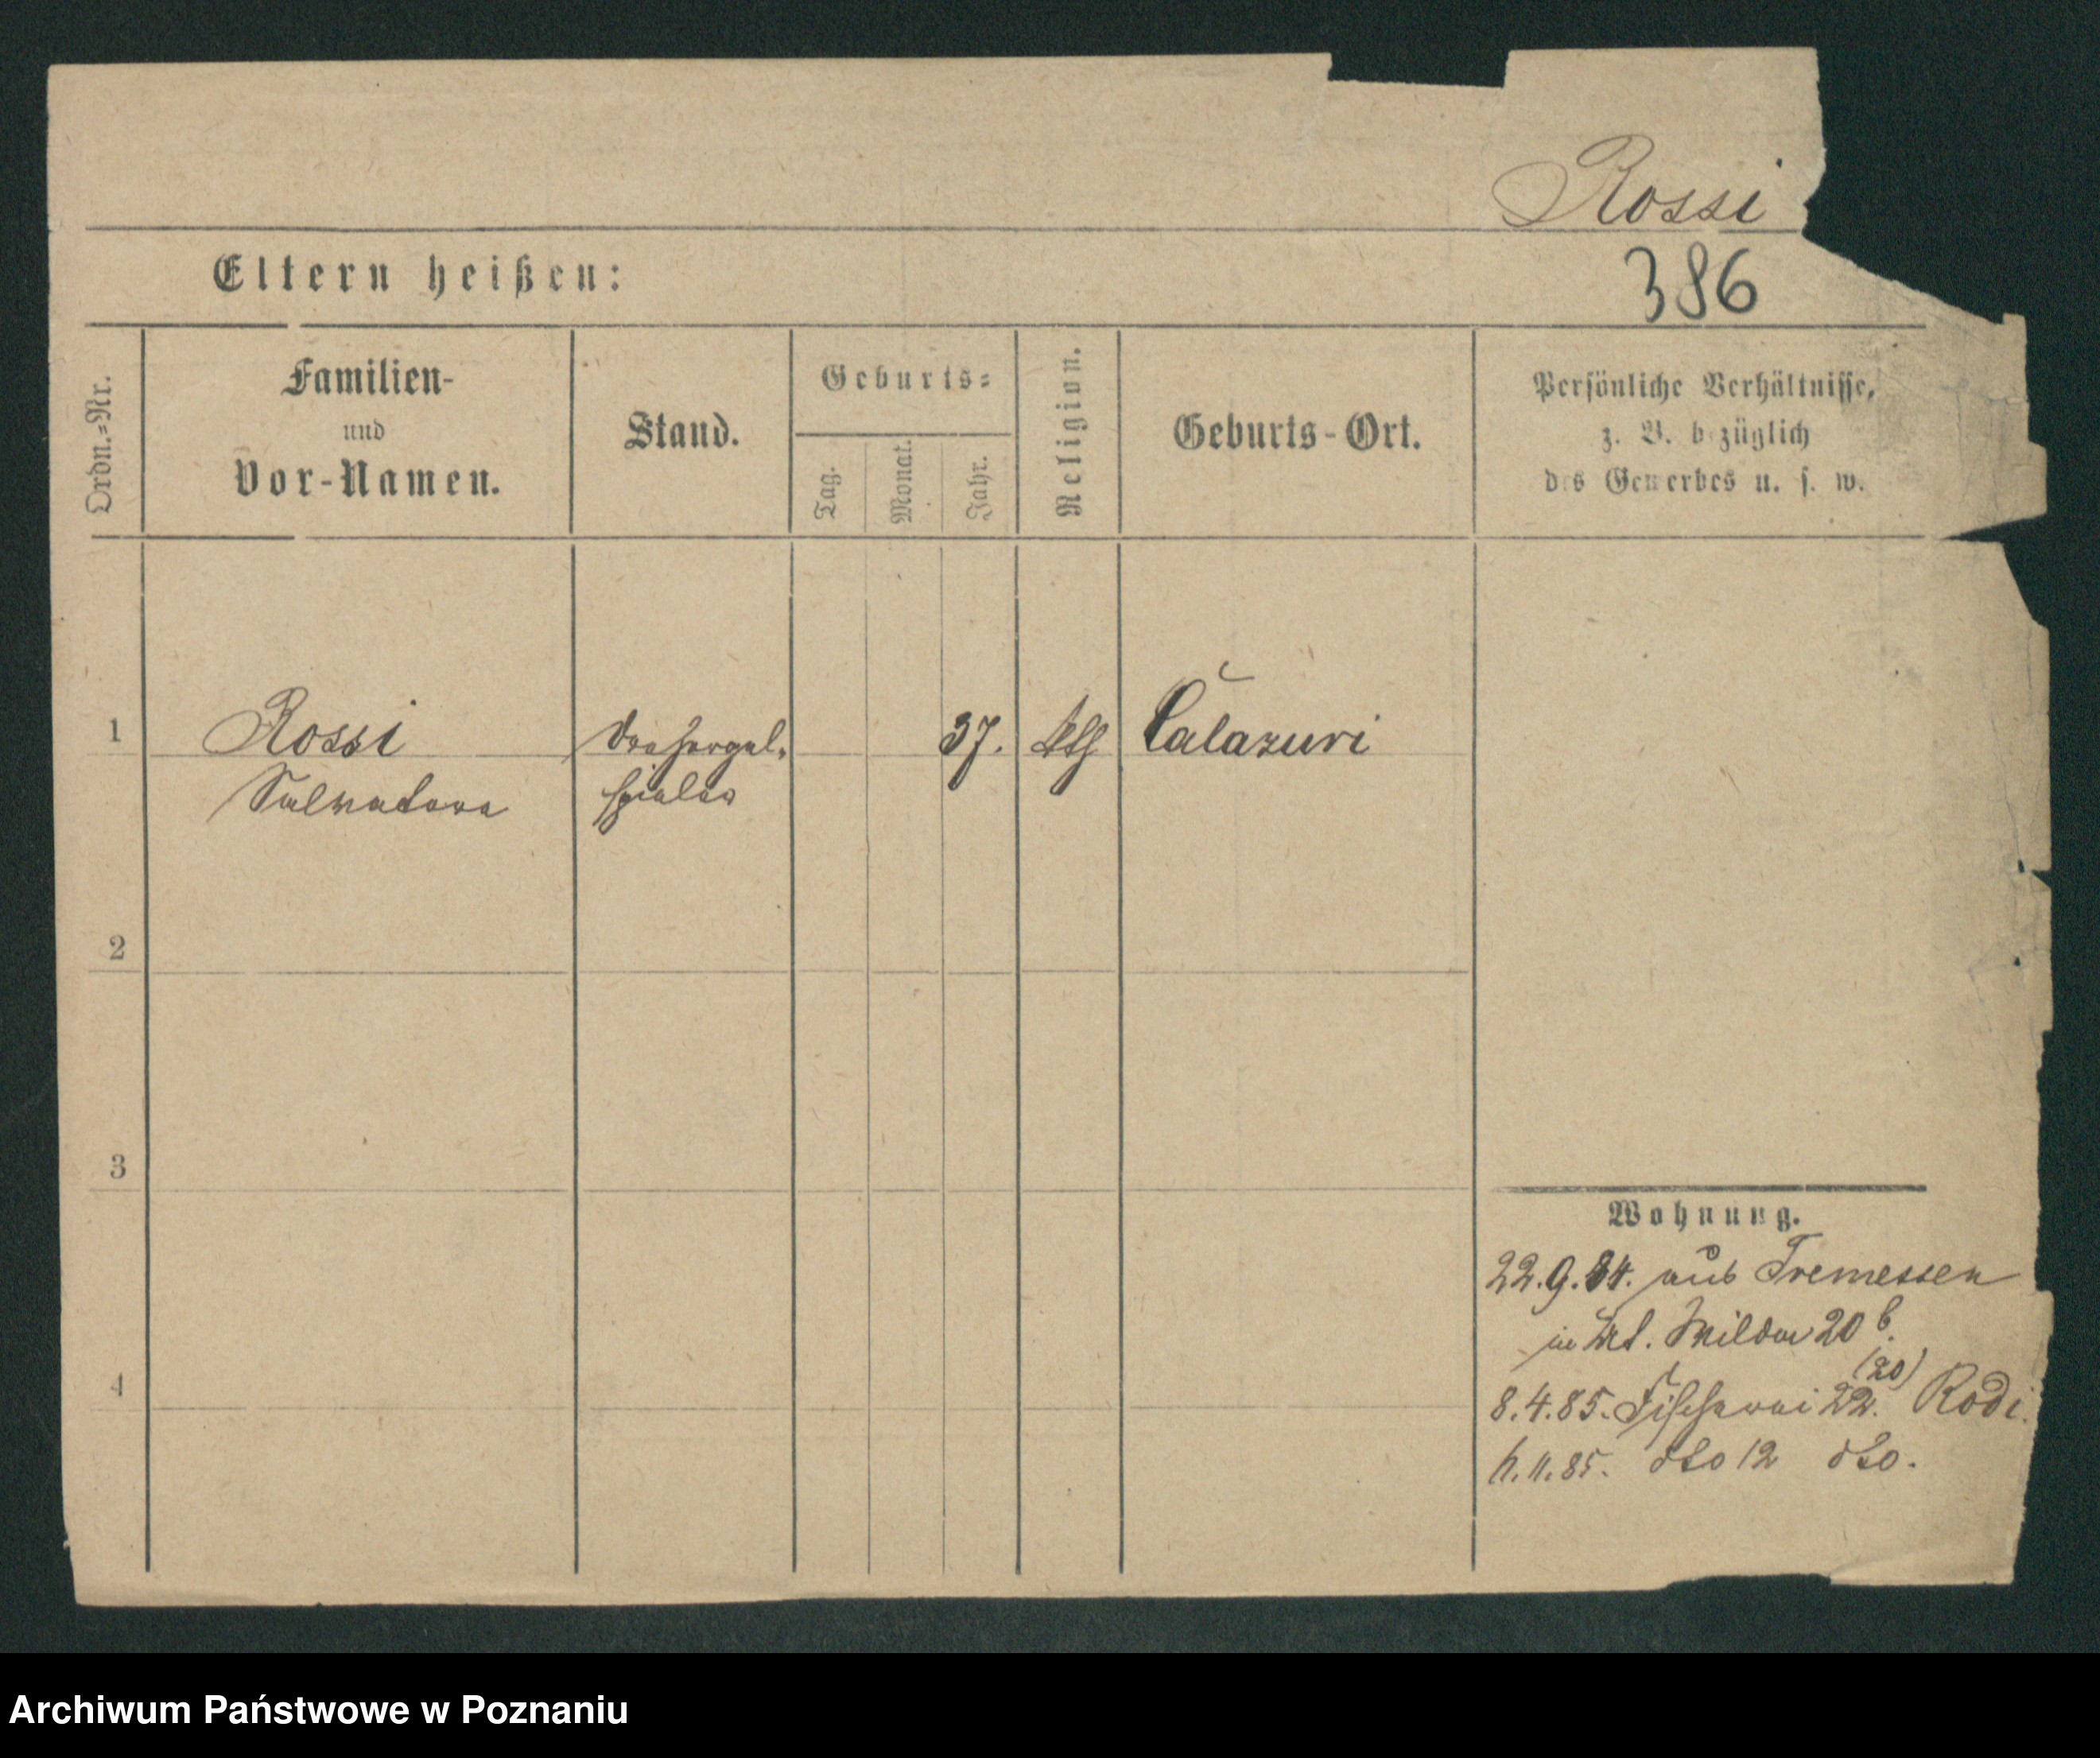 Rossi
386
Eltern heißen:
Ordn.=Nr.
Familien-
und
Vor-Namen.
Stand.
Geburts=
Tag.
Monat.
Jahr.
Religion.
Geburts-Ort.
Persönliche Verhältnisse,
z. B. bezüglich
des Gewerbes u. s. w.
1
Rossi
Salvatore
Drehorgel-
spieler
37.
kth
Calazuri
2
3
4
Wohnung.
22.9.84. aus Tremessen
in Wl. Wilda 20 b.
8.4.85. Fischerei 22. (20) Rodi
11.85. dto 12 dto.
Archiwum Państwowe w Poznaniu